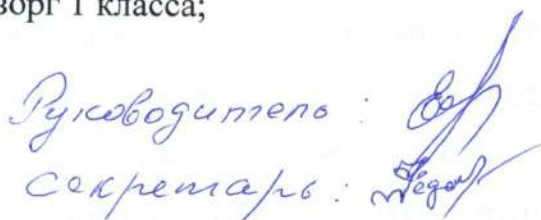 ворг 1 класса;
Руководитель:
Секретарь: